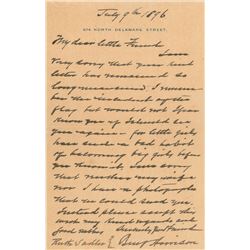 July 9th 1896
674 NORTH DELAWARE STREET.
My dear little Friend
I am
very sorry that your kind
letter has remained so
long unanswered. I remem-
ber the incident of the
flag, but would not I fear
know you if I should see
you again - for little girls
have such a bad habit
of becoming big girls before
you know it. I am sorry
that neither my wife
nor I have a photograph
that we could send you.
Instead please accept this
with my kind regards and
good wishes Sincerely your Friend
Ruth Sadler } Benj Harrison